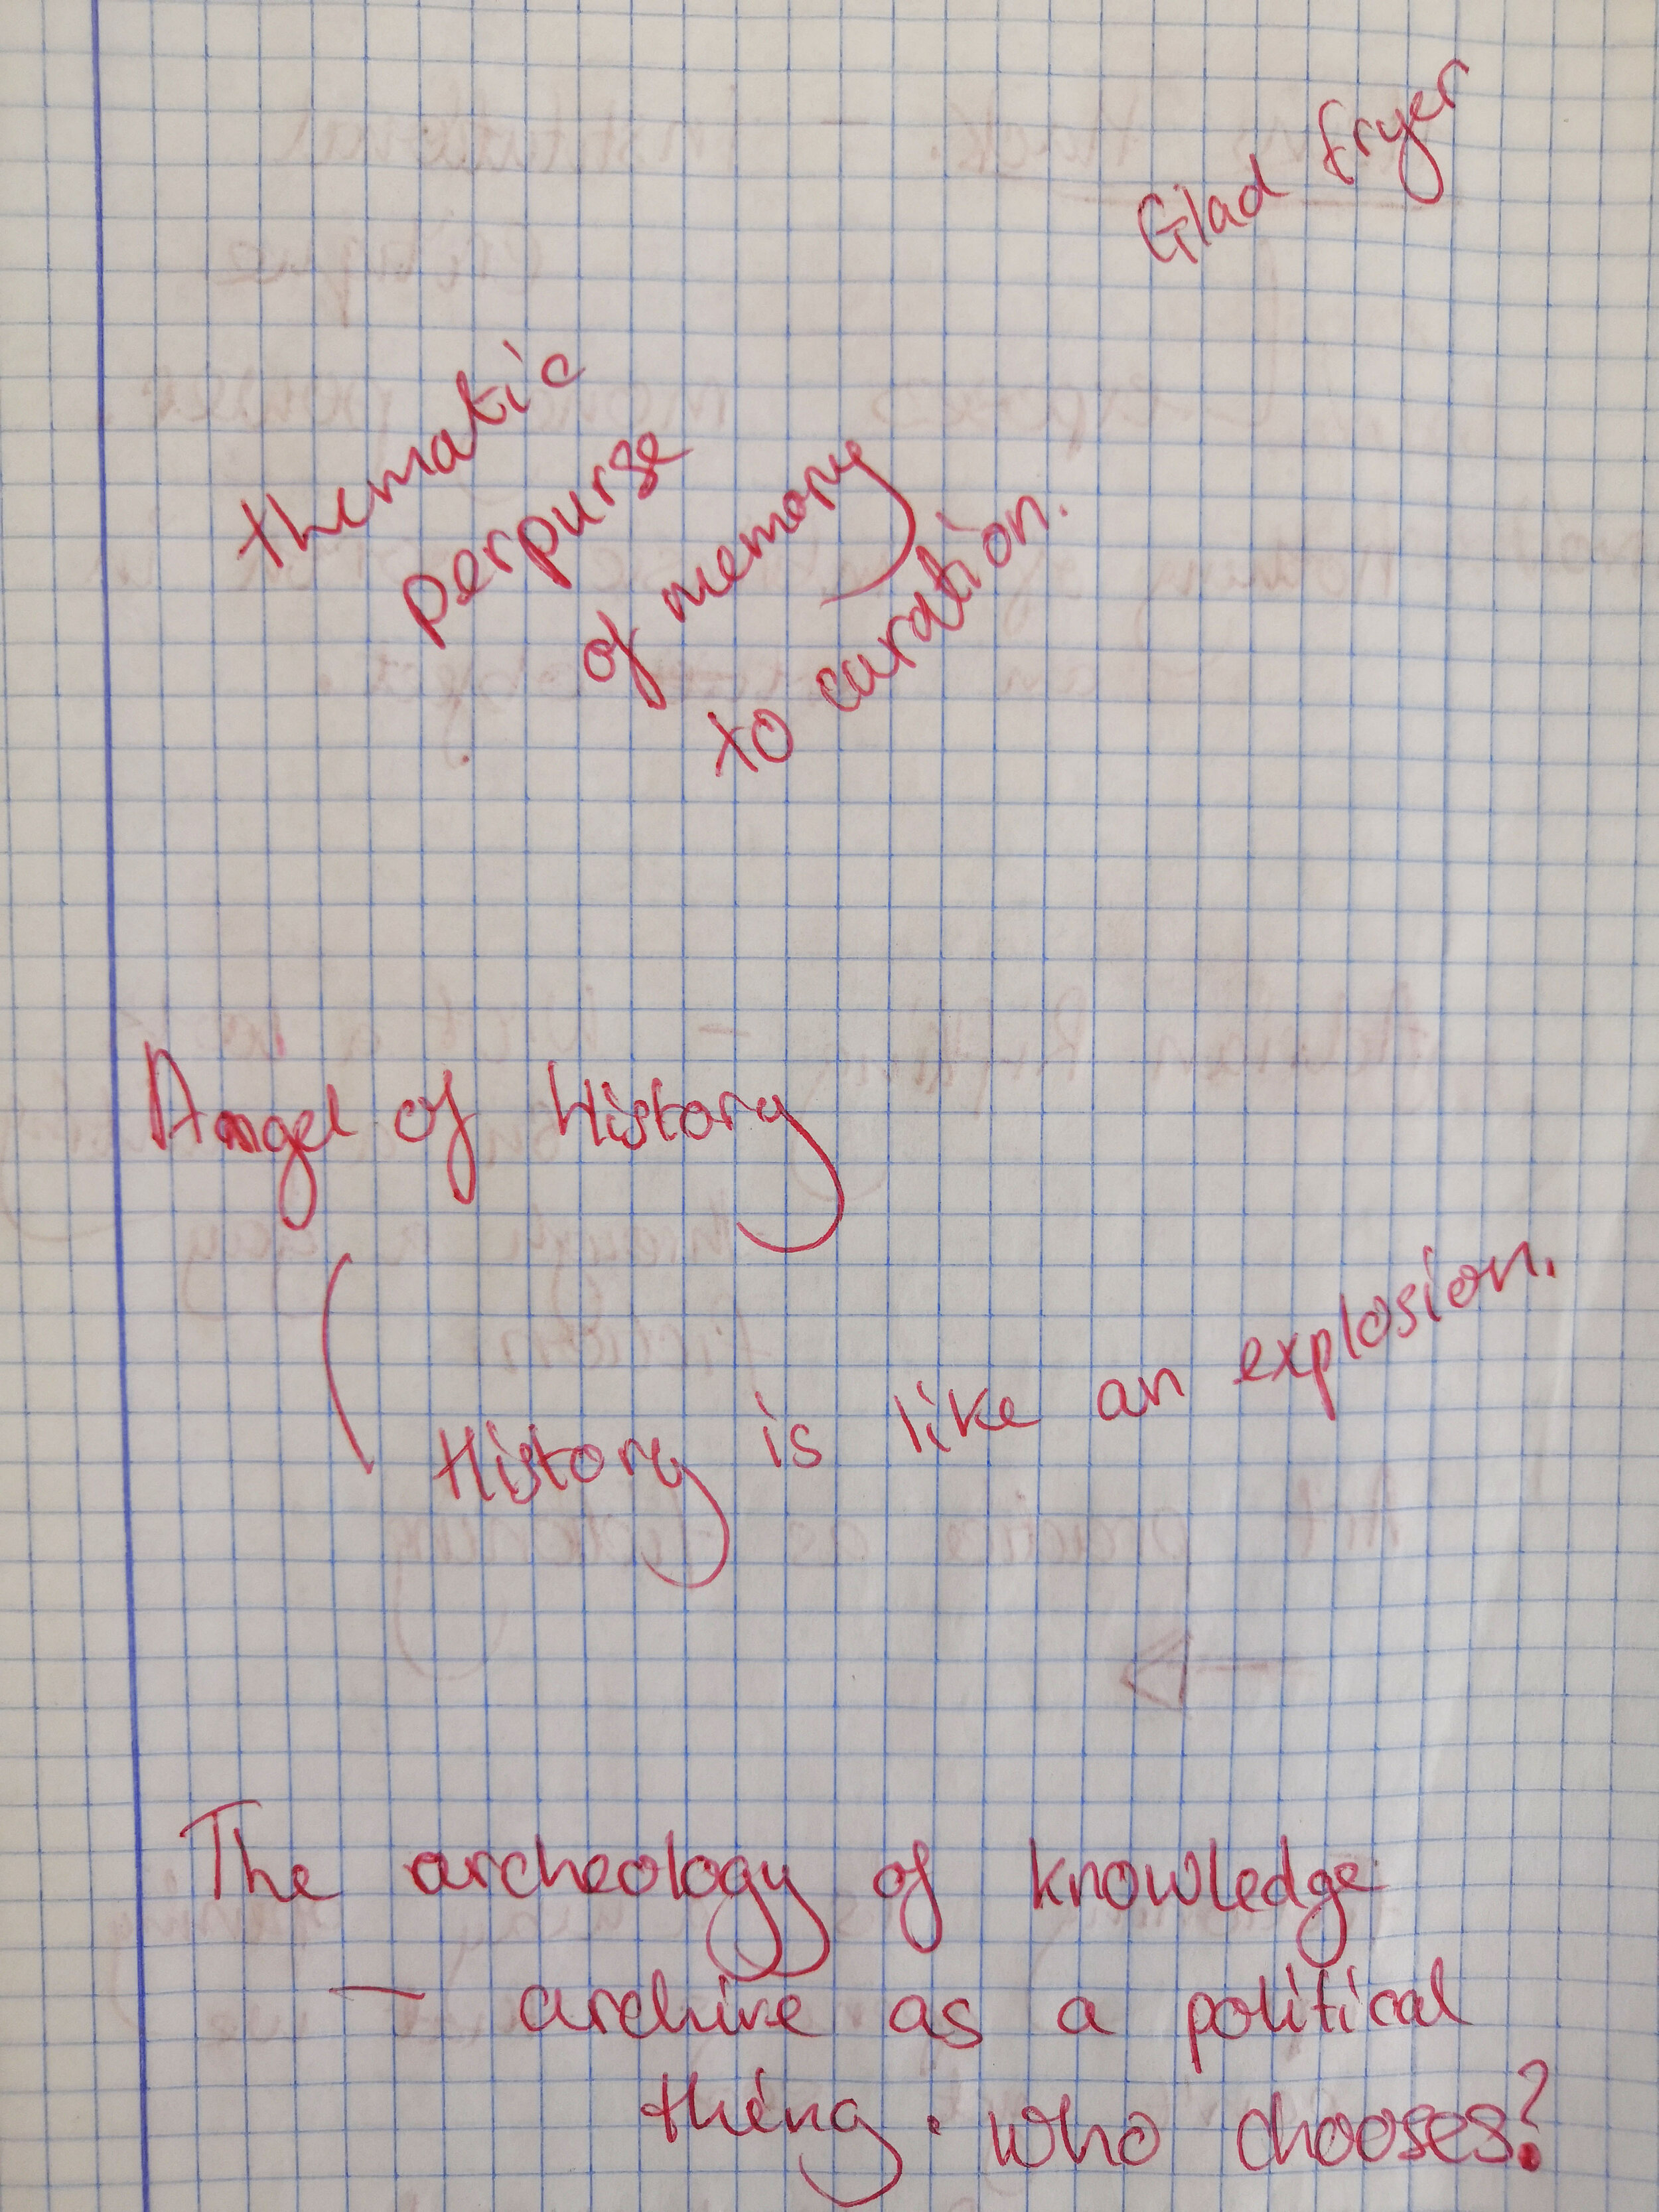 Glad fryer
thematic
perpurse
of memory
to curation.
Angel of History
History is like an explosion.
The archeology of knowledge
— archive as a political
thing. Who chooses?